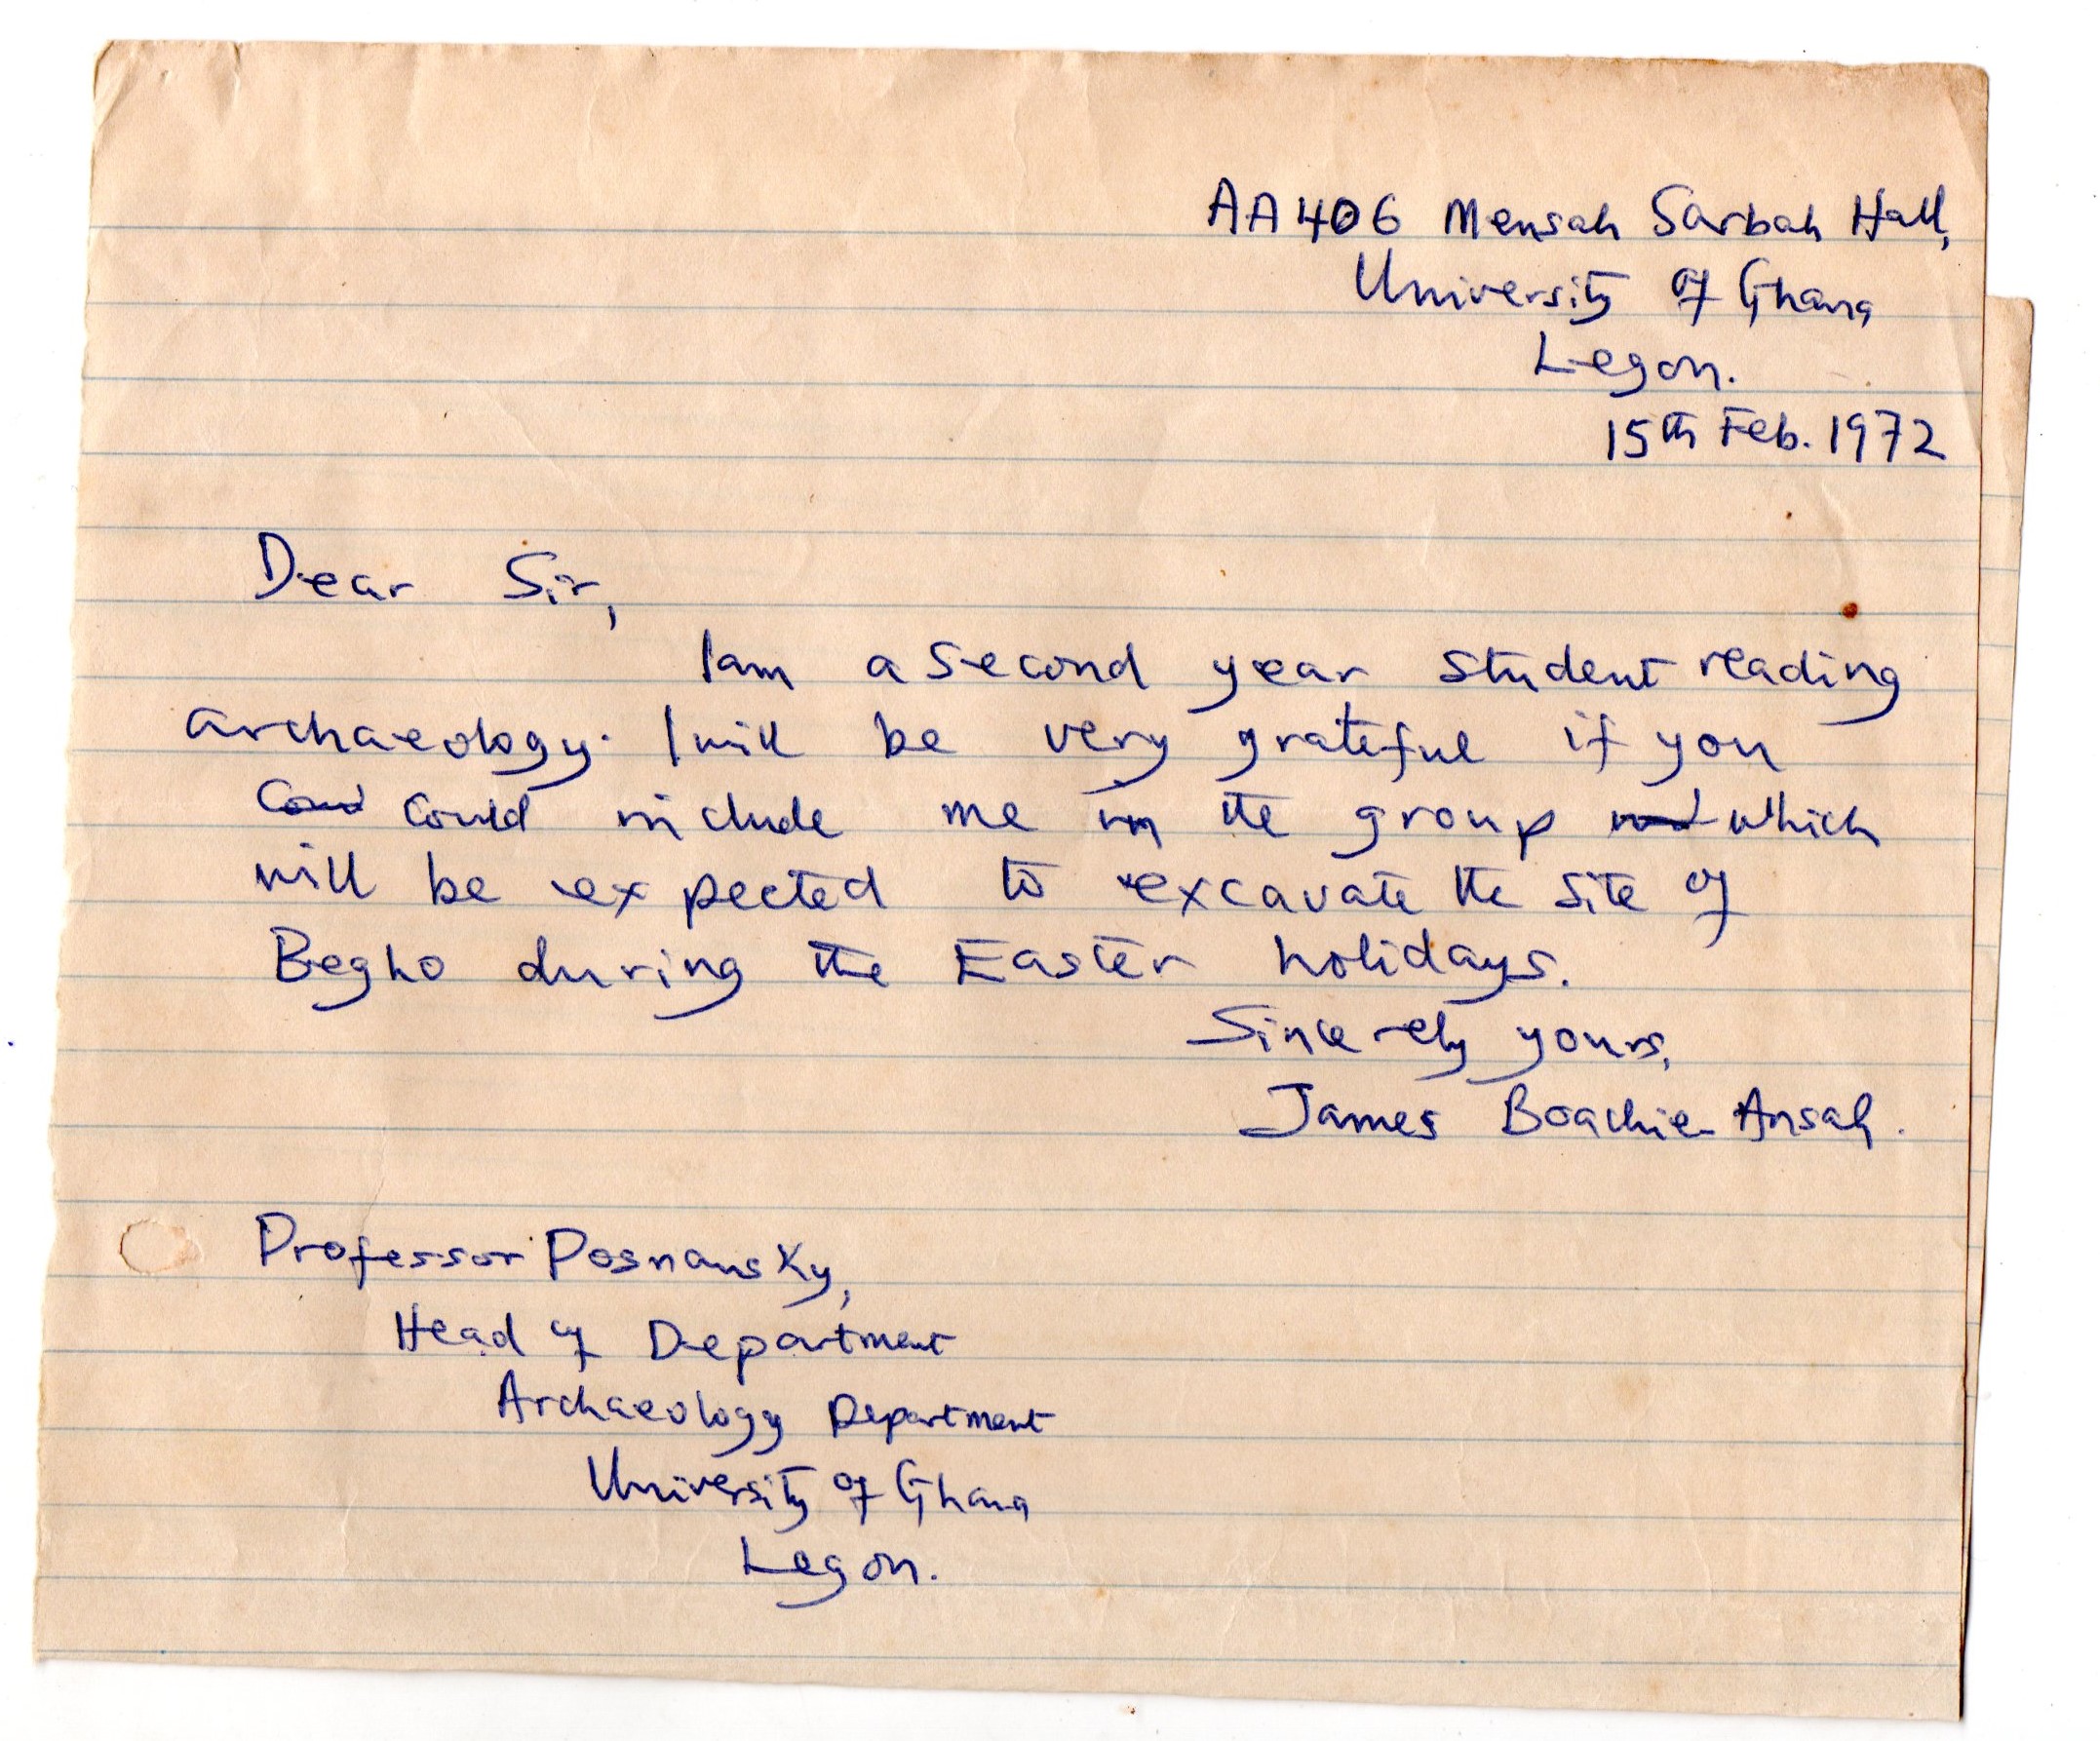 AA406 Mensah Sarbah Hall,
University of Ghana
Legon.
15th Feb. 1972
Dear Sir,
I am a second year student reading
archaeology. I will be very grateful if you
could include me in the group which
will be expected to excavate the site of
Begho during the Easter holidays.
Sincerely yours,
James Boachie-Ansah.
Professor Posnansky,
Head of Department
Archaeology Department
University of Ghana
Legon.